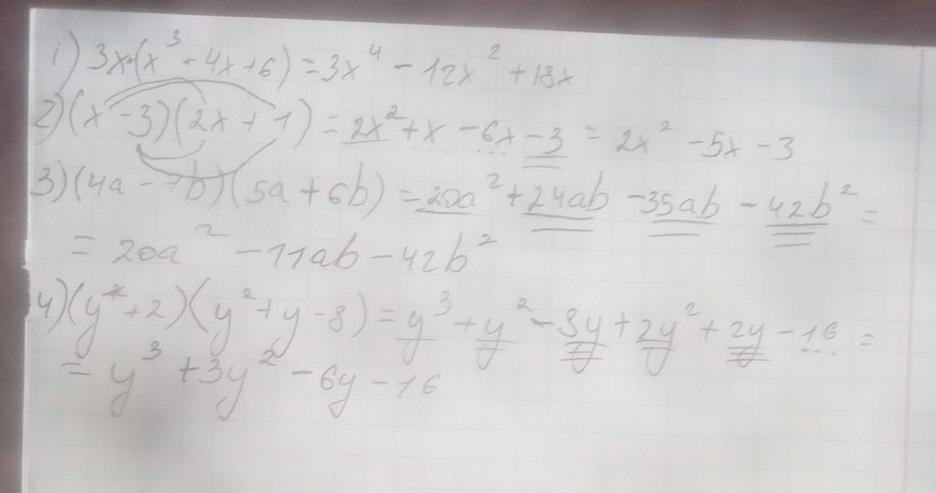 1) 3x·(x³ - 4x + 6) = 3x⁴ - 12x² + 18x
2) (x - 3)(2x + 1) = 2x² + x - 6x - 3 = 2x² - 5x - 3
3) (4a - 7b)(5a + 6b) = 20a² + 24ab - 35ab - 42b² =
= 20a² - 11ab - 42b²
4) (y + 2)(y² + y - 8) = y³ + y² - 8y + 2y² + 2y - 16 =
= y³ + 3y² - 6y - 16